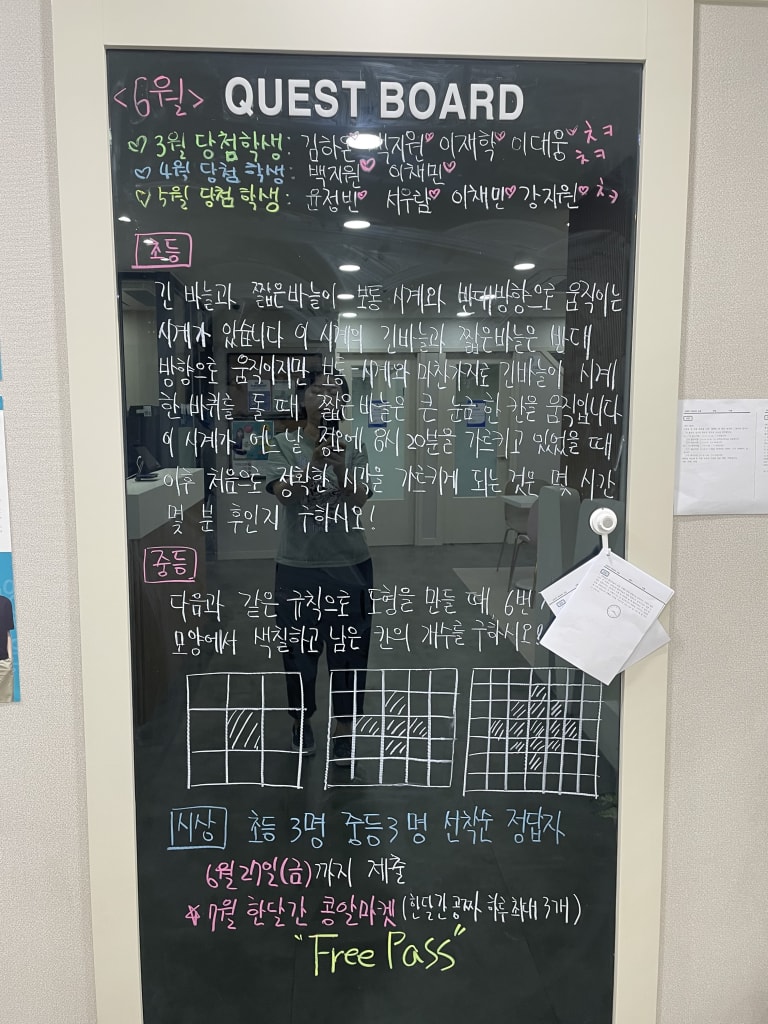 <6월> QUEST BOARD
♡3월 당첨학생: 김하은 백지원♡ 이재학♡ 이대웅♡ ㅊㅋ
♡4월 당첨 학생: 백지원♡ 이채민♡ ㅊㅋ
♡5월 당첨 학생: 윤정빈♡ 서우람♡ 이채민♡ 강지원♡ ㅊㅋ
초등
긴 바늘과 짧은바늘이 보통 시계와 반대방향으로 움직이는
시계가 있습니다 이 시계의 긴바늘과 짧은바늘은 반대
방향으로 움직이지만 보통 시계와 마찬가지로 긴바늘이 시계
한 바퀴를 돌 때, 짧은 바늘은 큰 눈금 한 칸을 움직입니다
이 시계가 어느 날 정오에 8시 20분을 가르키고 있었을 때
이후 처음으로 정확한 시각을 가르키게 되는 것은 몇 시간
몇 분 후인지 구하시오!
중등
다음과 같은 규칙으로 도형을 만들 때, 6번
모양에서 색칠하고 남은 칸의 개수를 구하시오!
시상 초등 3명 중등 3명 선착순 정답자
6월 27일(금)까지 제출
☆7월 한달간 콩알마켓 (한달간 공짜 하루 최대 3개)
"Free Pass"